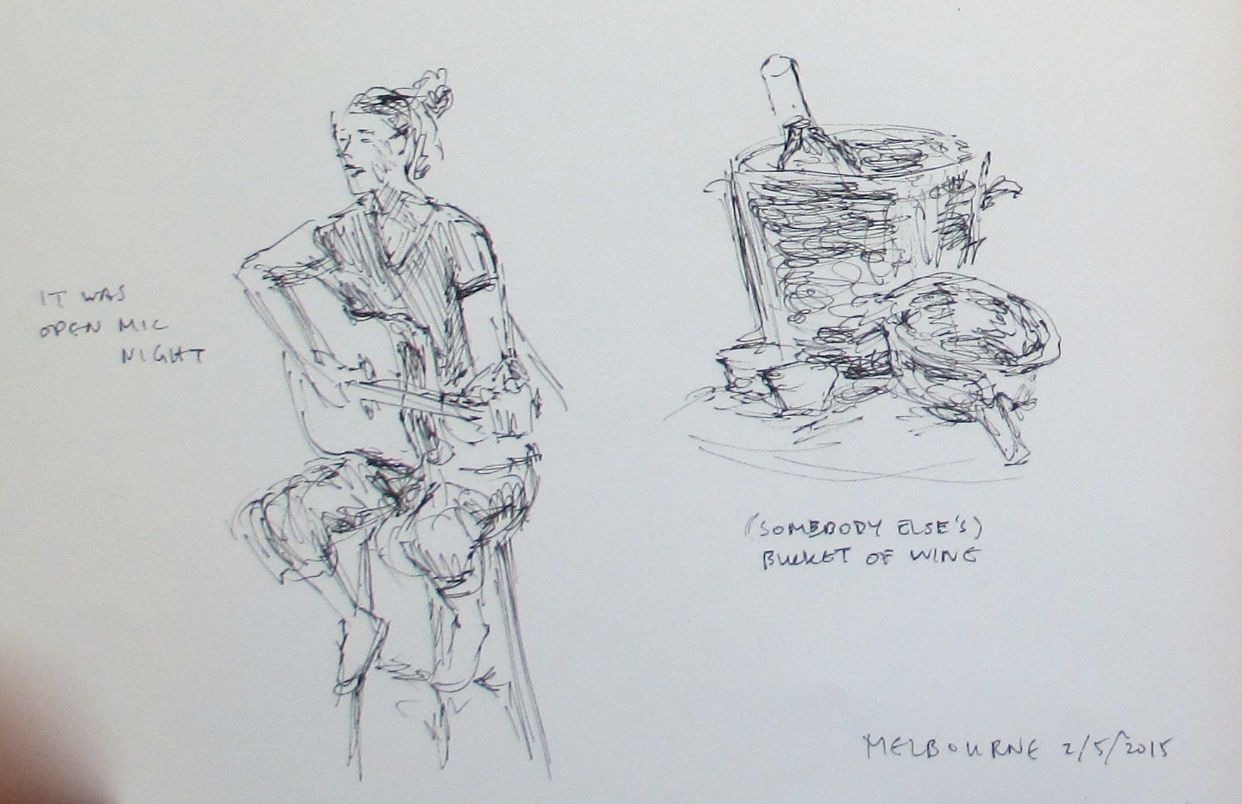 IT WAS
OPEN MIC
NIGHT
(SOMEBODY ELSE'S)
BUCKET OF WINE
MELBOURNE 2/5/2015